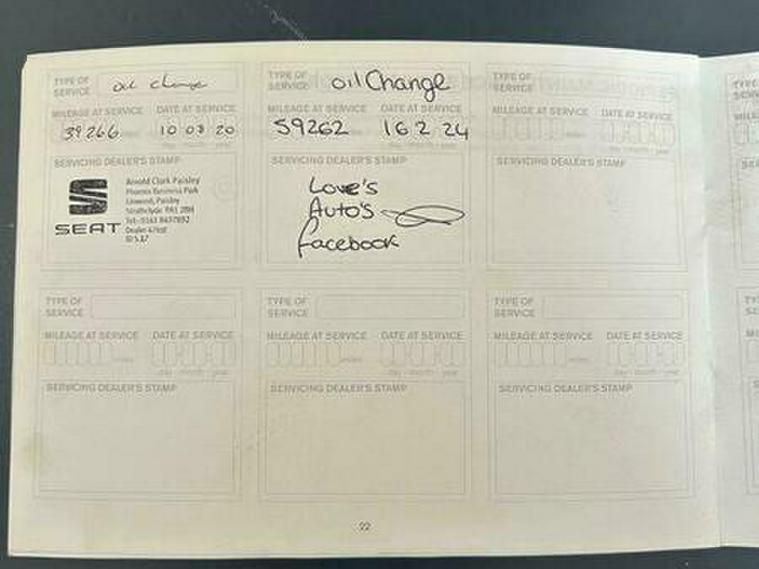 TYPE OF SERVICE oil change
MILEAGE AT SERVICE DATE AT SERVICE
39266 10 03 20
SERVICING DEALER'S STAMP
SEAT
Arnold Clark Paisley
Phoenix Business Park
Linwood, Paisley
Strathclyde PA1 2BH
TYPE OF SERVICE oil Change
MILEAGE AT SERVICE DATE AT SERVICE
59262 16 2 24
SERVICING DEALER'S STAMP
Love's
Auto's
facebook
TYPE OF SERVICE
MILEAGE AT SERVICE DATE AT SERVICE
SERVICING DEALER'S STAMP
TYPE OF SERVICE
MILEAGE AT SERVICE DATE AT SERVICE
miles day month year
SERVICING DEALER'S STAMP
TYPE OF SERVICE
MILEAGE AT SERVICE DATE AT SERVICE
miles day month year
SERVICING DEALER'S STAMP
TYPE OF SERVICE
MILEAGE AT SERVICE DATE AT SERVICE
miles day month year
SERVICING DEALER'S STAMP
22